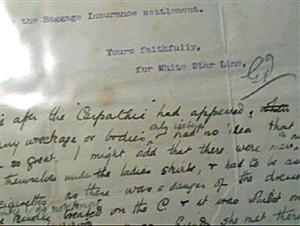 the Baggage Insurance settlement.
Yours faithfully,
for White Star Line,
after the "Carpathia" had appeared,
any wreckage or bodies had no idea that
so great. I might add that there were men
themselves under the ladies skirts, & had to be
as there was a danger of the
treated on the C & it was whilst on
she met there